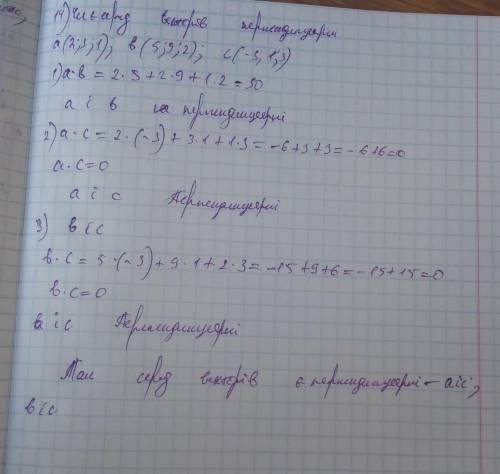 14) Чи є серед векторів перпендикулярні
a(2;3;1); в(5;9;2); с(-3;1;3)
1) a·в = 2·5+2·9+1·2=30
a і в не перпендикулярні
2) a·c = 2·(-3)+3·1+1·3=-6+3+3=-6+6=0
a·c=0
a і c Перпендикулярні
3) в і с
в·с = 5·(-3)+9·1+2·3=-15+9+6=-15+15=0
в·с=0
в і с Перпендикулярні
серед векторів є перпендикулярні - a і c,
в і с